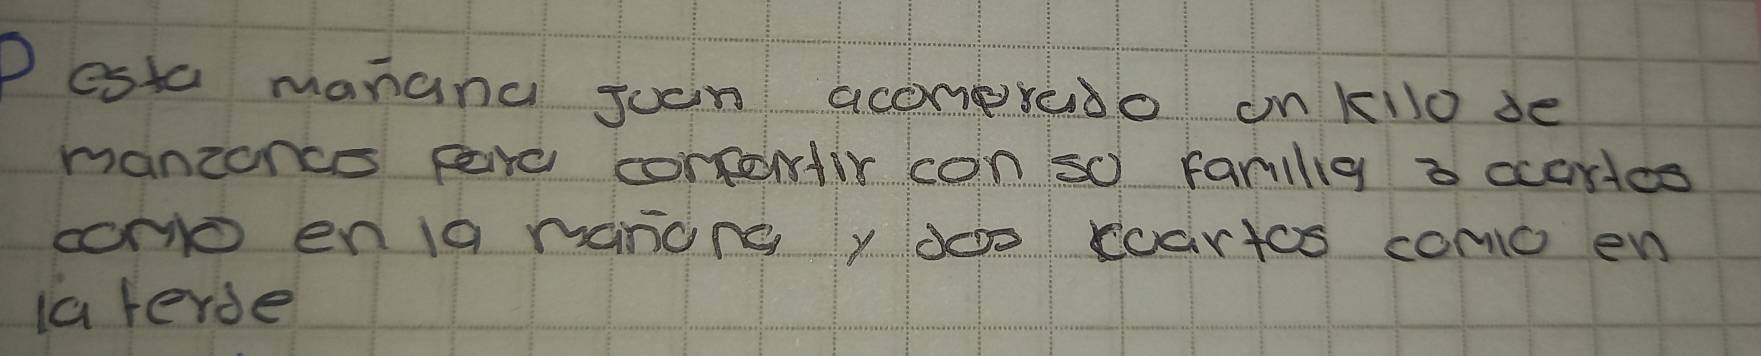 P esta mañana Juan acomprado un kilo de
manzanas para compartir con su familia 3 cuartos
comio en la mañana y dos cuartos comio en
la terde